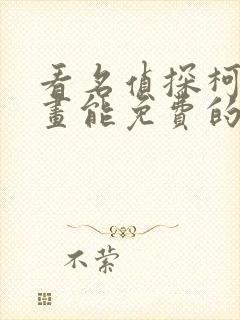 看名偵探柯
畫能免費的
不縈